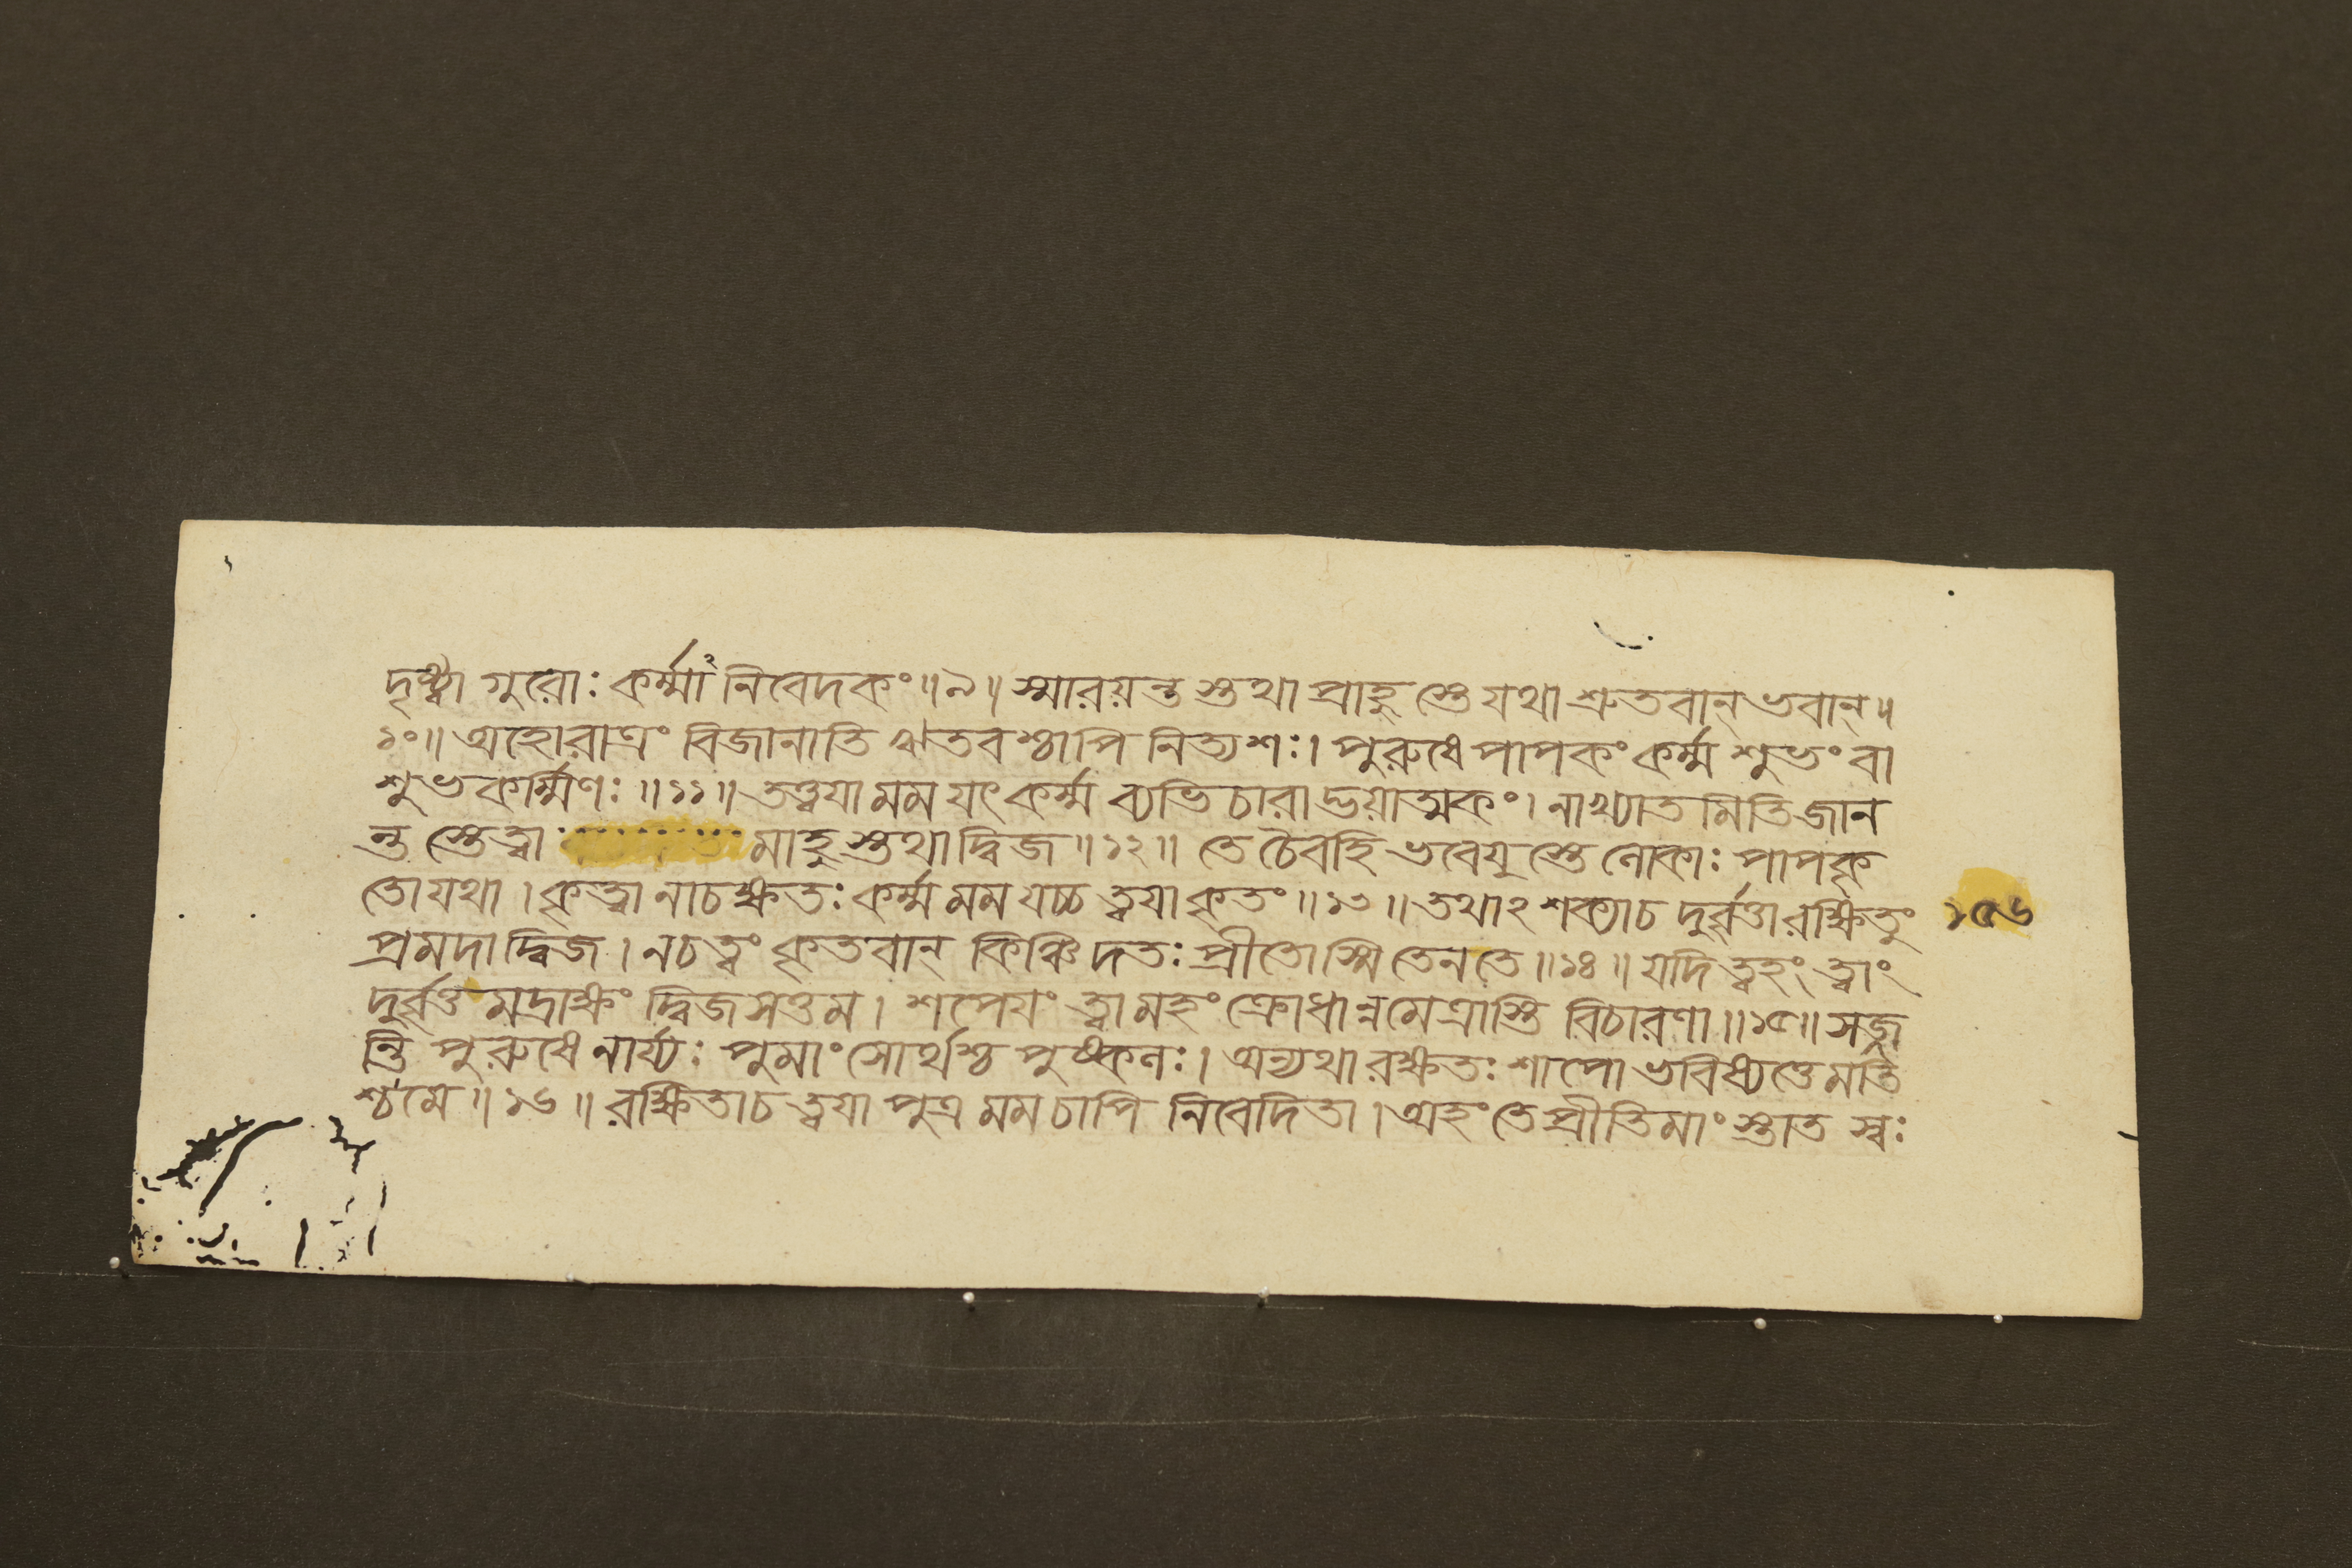 দৃষ্ট্বা গুরোঃ কর্ম্মানিবেদকং॥৯॥ স্মারয়ন্তস্তথা প্রাহুস্তে যথা শ্রুতবান্ ভবান্॥
১০॥ অহোরাত্রং বিজানাতি ঋতবশ্চাপি নিত্যশঃ। পুরুষে পাপকং কর্ম্ম শুভং বা
শুভকর্ম্মিণঃ॥১১॥ তত্ত্বয়া মম যৎ কর্ম্ম ব্যভিচারাদ্ভয়াত্মকং। নাখ্যাতমিতি জান
ন্তস্তেত্বা মাহুস্তথা দ্বিজ॥১২॥ তে চৈব হি ভবেযুস্তে লোকাঃ পাপকৃ
তো যথা। কৃত্বা নাচক্ষতঃ কর্ম্ম মম যচ্চ ত্বয়া কৃতং॥১৩॥ তথাঽ শক্যাচ দুর্ব্বৃত্তা রক্ষিতুং
১৫৬
প্রমদা দ্বিজ। নচ ত্বং কৃতবান্ কিঞ্চিদতঃ প্রীতোস্মি তেন তে॥১৪॥ যদি ত্বহং ত্বাং
দুর্ব্বৃত্তমদ্রাক্ষং দ্বিজসত্তম। শপেয়ং ত্বামহং ক্রোধান্নমেত্রাস্তি বিচারণা॥১৫॥ সজ্জ
ন্তি পুরুষে নার্য্যঃ পুমাংসোর্থশ্চ পুষ্কলঃ। অন্যথা রক্ষতঃ শাপো ভবিষ্যত্তে মতি
শ্চমে॥১৬॥ রক্ষিতাচ ত্বয়া পুত্র মম চাপি নিবেদিতা। অহং তে প্রীতিমাংস্তাত স্বঃ